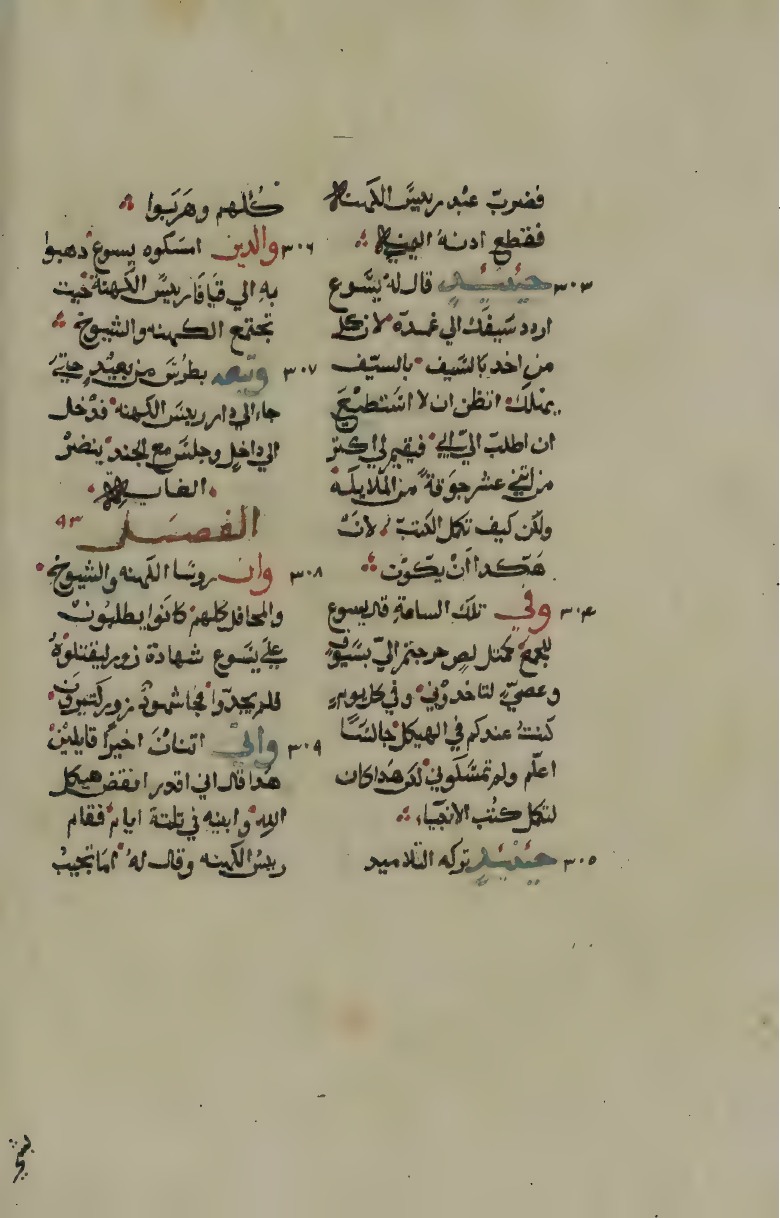 فضرب عبد رييس الكهنه
فقطع ادنه اليمني
٣٠٣ حينيذ قال له يسوع
اردد سيفك الي غمده لان كل
من اخد بالسيف بالسيف
يهلك اتظن ان لا استطيع
ان اطلب الي ابي فيقيم لي اكتر
من اتني عشر جوقة من الملايكه
ولكن كيف تكمل الكتب لان
هكدا ان يكون
٣٠٤ وفي تلك الساعة قال يسوع
للجمع كمتل لص خرجتم الي بسيوف
وعصي لتاخدوني وفي كل يوم
كنت عندكم في الهيكل جالسا
اعلم ولم تمسكوني لكن هدا كان
لتكمل كتب الانبياء
٣٠٥ حينيذ تركه التلاميد
كلهم وهربوا
٣٠٦ والدين امسكوه يسوع دهبوا
به الي قيافا رييس الكهنة حيت
تجتمع الكهنه والشيوخ
٣٠٧ وتبعه بطرس من بعيد حتي
جاء الي دار رييس الكهنه فدخل
الي داخل وجلس مع الجند ينضر
الغايه
الفصل ٩٣
٣٠٨ وان روسا الكهنه والشيوخ
والمحافل كلهم كانوا يطلبون
علي يسوع شهادة زور ليقتلوه
فلم يجدوا فجا شهود زور كتيرون
٣٠٩ واتي اتنان اخيرا قايلين
هدا قال اني اقدر انقض هيكل
الله وابنيه في تلتة ايام فقام
رييس الكهنه وقال له اما تجيب